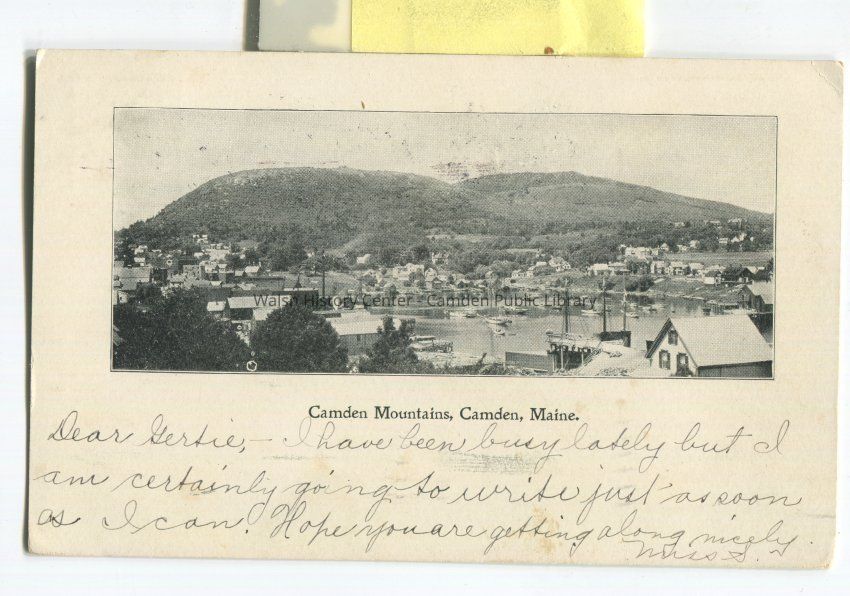 Walsh History Center - Camden Public Library
Camden Mountains, Camden, Maine.
Dear Gertie, - I have been busy lately but I
am certainly going to write just as soon
as I can. Hope you are getting along nicely.
Miss S.